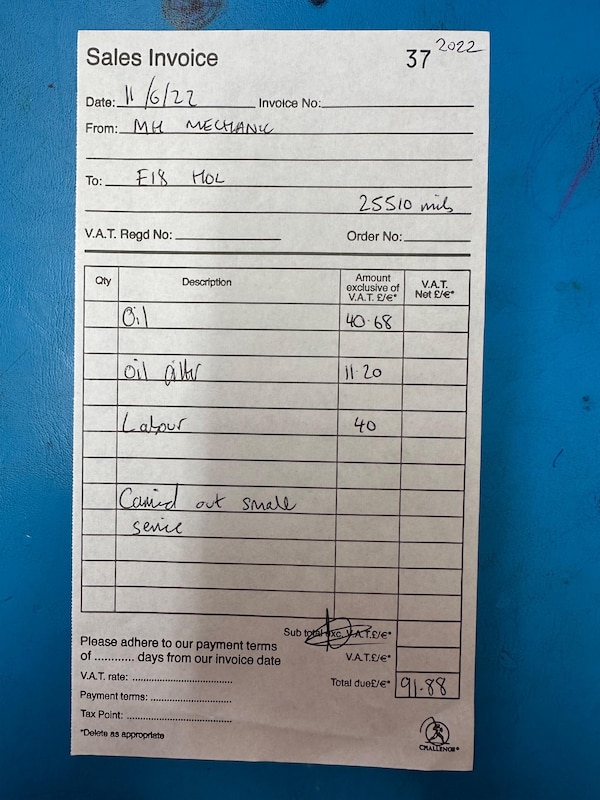 Sales Invoice
37 2022
Date: 11/6/22 Invoice No:
From: MH MECHANIC
To: F18 HOL
25510 mils
V.A.T. Regd No: Order No:
Qty Description Amount exclusive of V.A.T. £/€* V.A.T. Net £/€*
Oil 40.68
Oil filter 11.20
Labour 40
Carried out small
service
Sub total exc. V.A.T.£/€*
Please adhere to our payment terms
of ............ days from our invoice date
V.A.T.£/€*
V.A.T. rate: ............................
Total due£/€* 91.88
Payment terms: .......................
Tax Point: .............................
*Delete as appropriate
CHALLENGE*